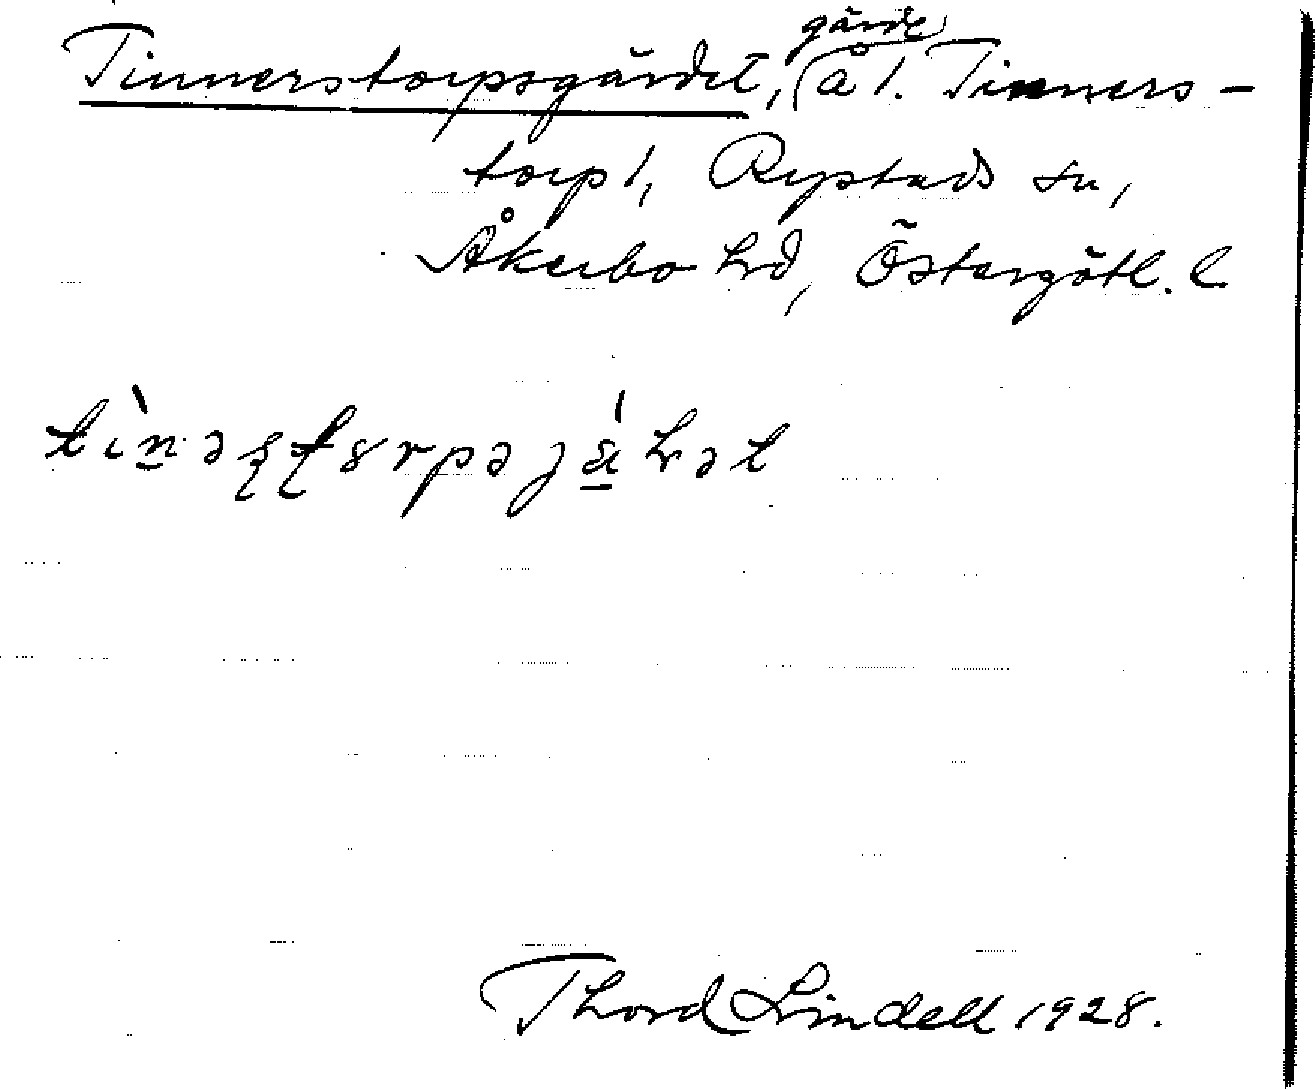 Tinnerstorpsgärdet, gärde å 1. Tinners-
torp 1, Rystads sn,
Åkerbo hd, Östergötl. l.
Thord Lindell 1928.